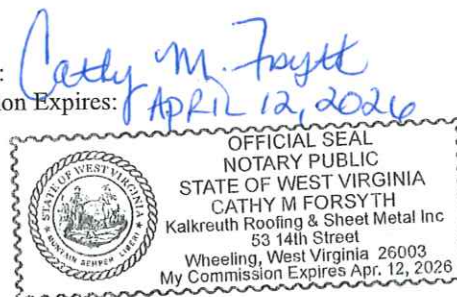 : Cathy M. Forsyth
on Expires: APRIL 12, 2026
OFFICIAL SEAL
NOTARY PUBLIC
STATE OF WEST VIRGINIA
CATHY M FORSYTH
Kalkreuth Roofing & Sheet Metal Inc
53 14th Street
Wheeling, West Virginia 26003
My Commission Expires Apr. 12, 2026
STATE OF WEST VIRGINIA
MONTANI SEMPER LIBERI